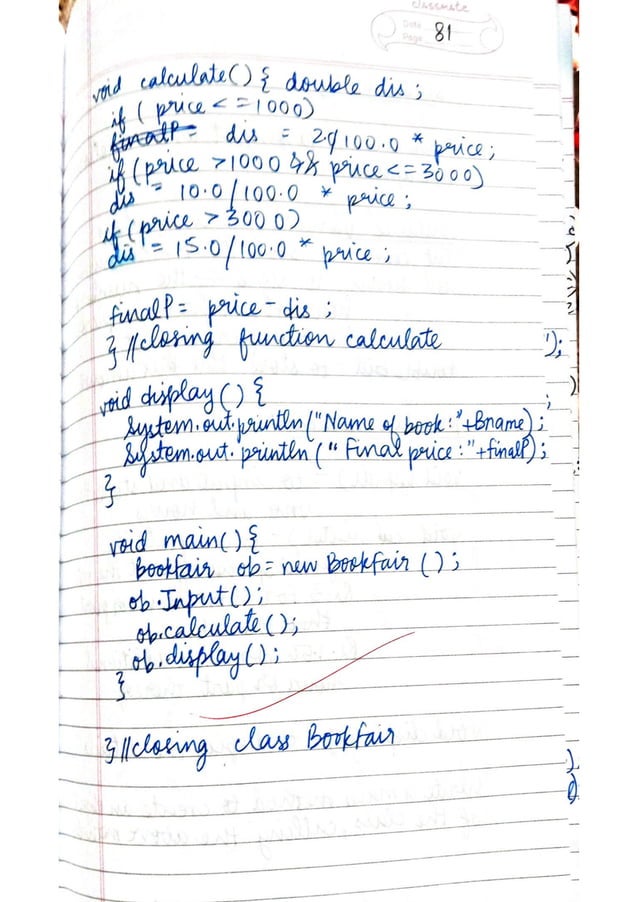 Discrete
Date
Page 81
void calculate() { double dis ;
if ( price <=1000)
finalP= dis = 2.0/100.0 * price;
if (price >1000 && price<=3000)
dis = 10.0/100.0 * price ;
if (price > 3000)
dis = 15.0/100.0 * price ;
finalP = price - dis ;
} //closing function calculate
void display() {
System.out.println("Name of book:"+Bname);
System.out.println (" Final price :"+finalP);
}
void main() {
Bookfair ob = new Bookfair ();
ob.Input();
ob.calculate();
ob.display();
}
} //closing class Bookfair